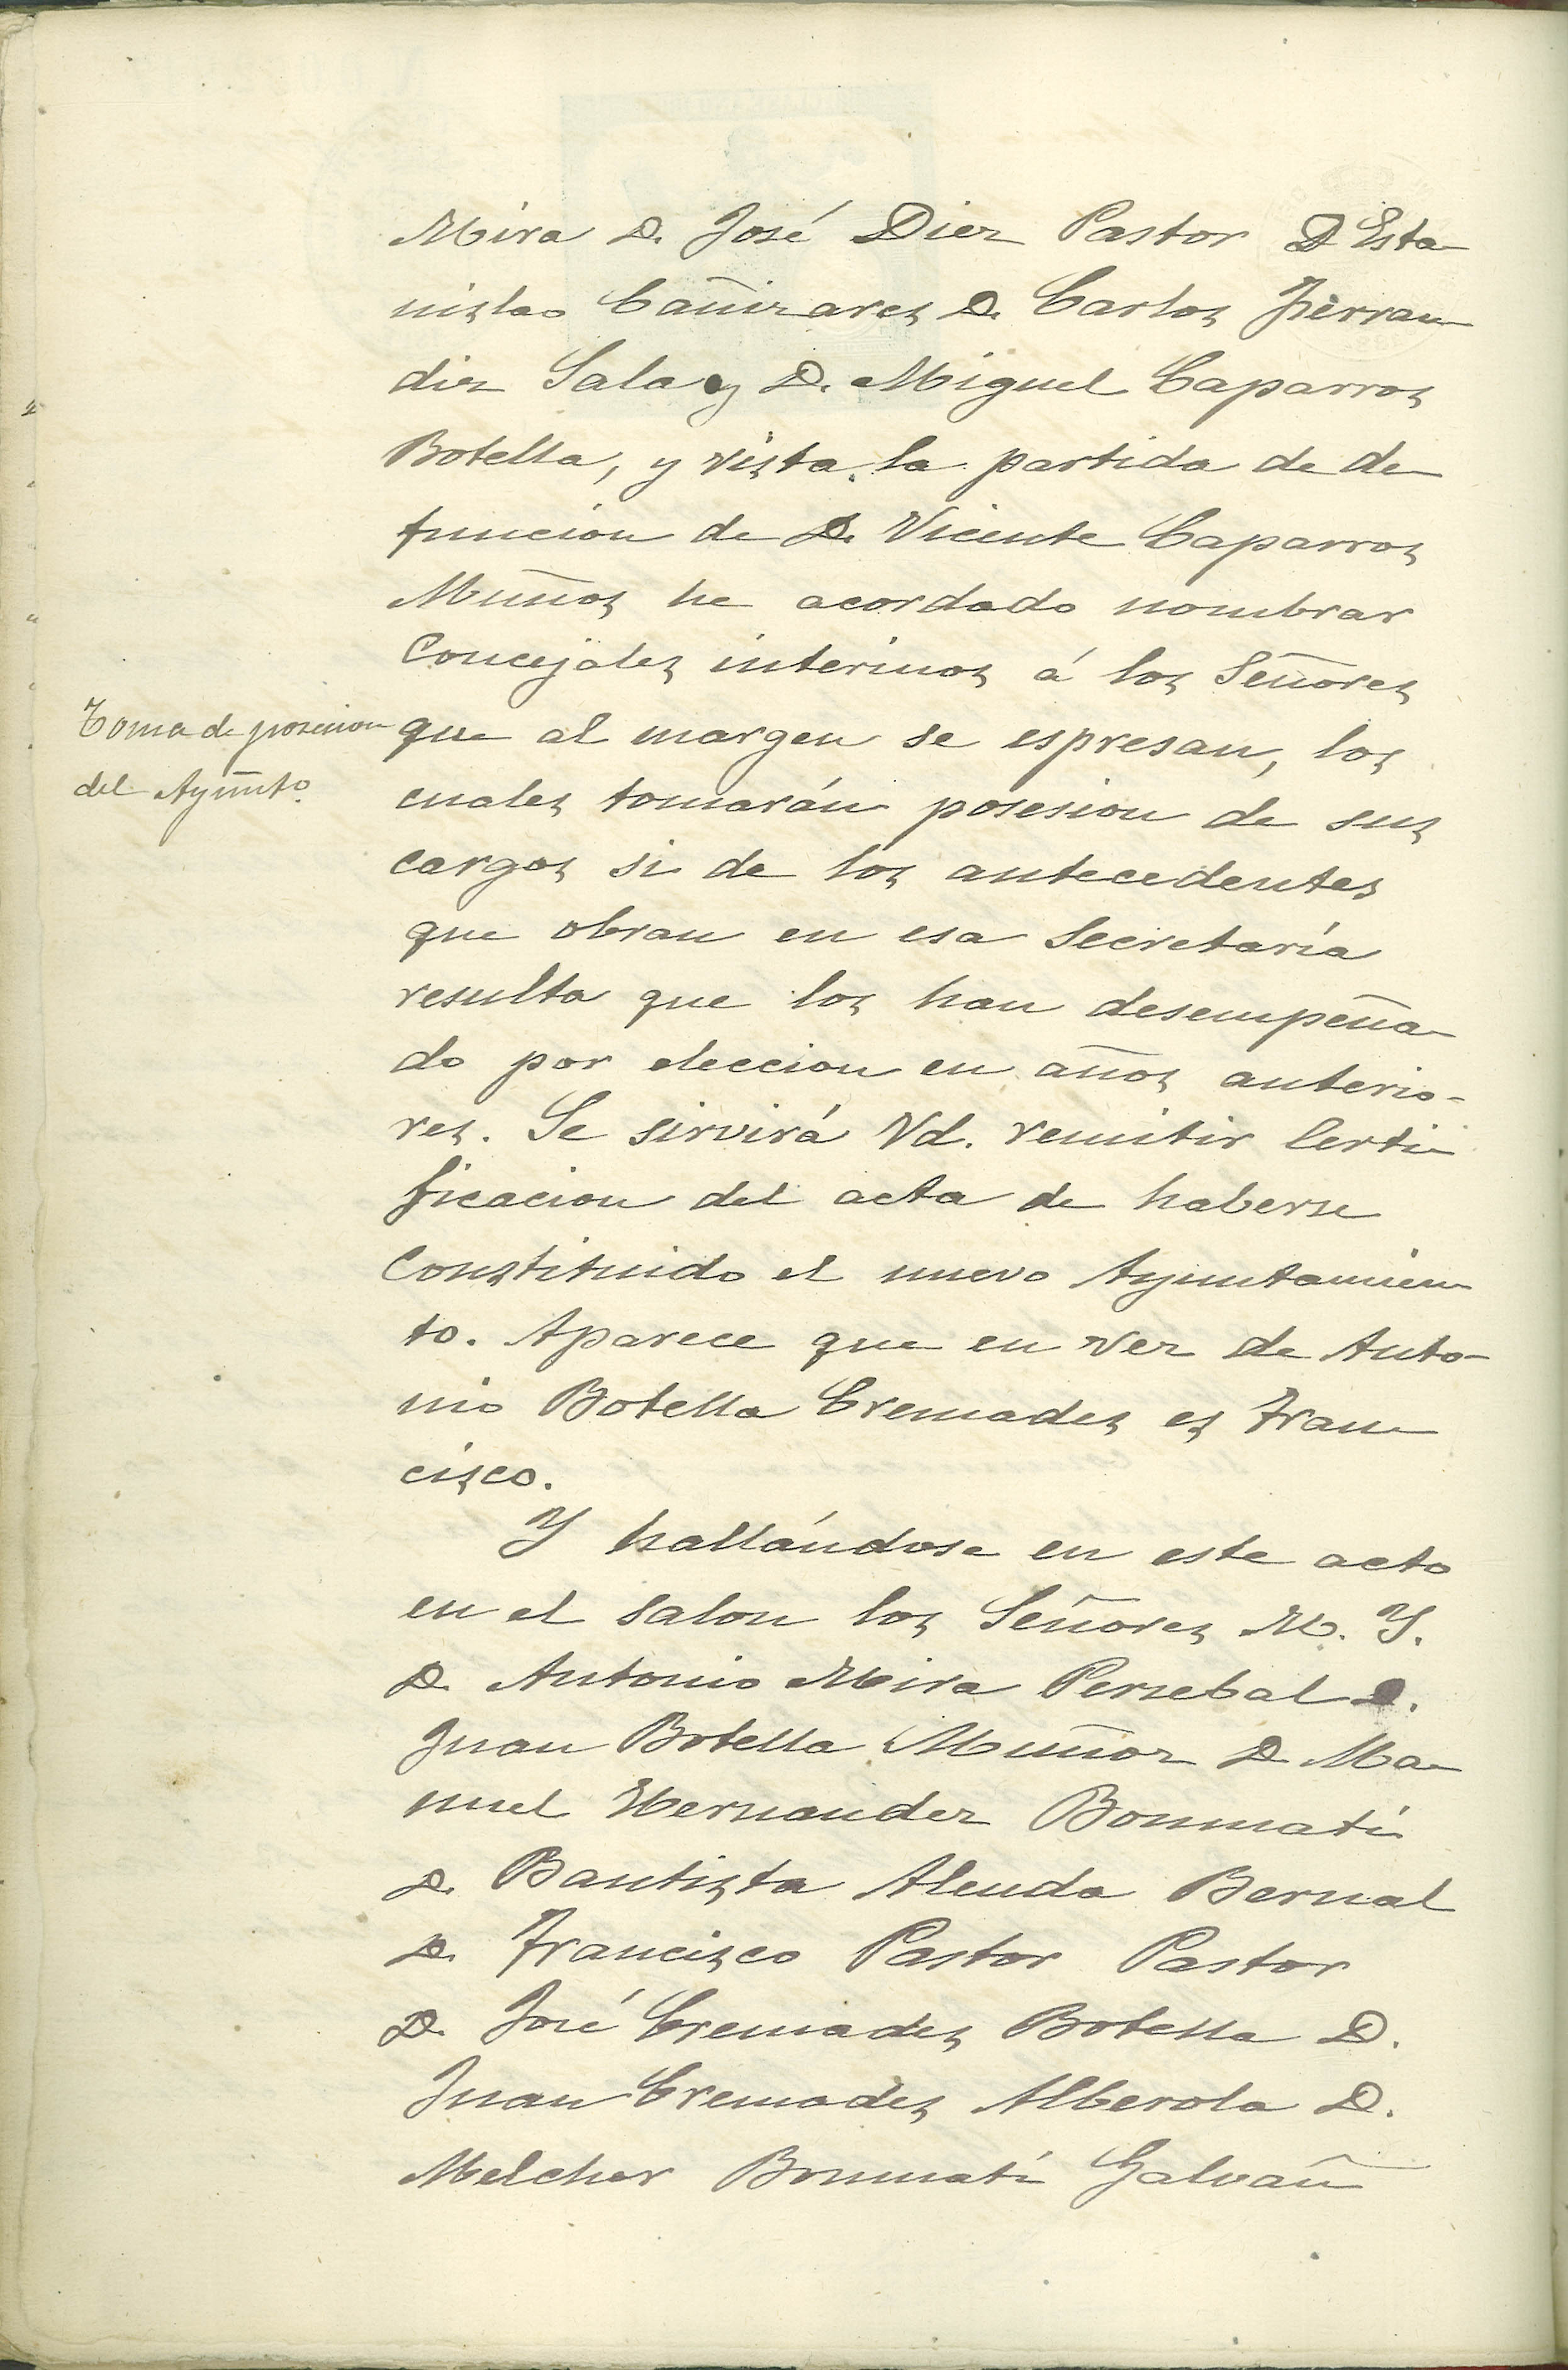 Mira D. José Diez Pastor D Esta-
nislao Cañizares D. Carlos Ferran-
diz Sala y D. Miguel Caparros
Botella, y vista la partida de de-
funcion de D. Vicente Caparros
Muños he acordado nombrar
Concejales interinos á los Señores
Toma de posesion
del Ayunto.
que al margen se espresan, los
cuales tomarán posesion de sus
cargos si de los antecedentes
que obran en esa Secretaría
resulta que los han desempeña-
do por eleccion en años anterio-
res. Se sirvirá Vd. remitir Certi-
ficacion del acta de haberse
Constituido el nuevo Ayuntamien-
to. Aparece que en vez de Anto-
nio Botella Cremades es Fran-
cisco.
Y hallándose en este acto
en el salon los Señores M. Y.
D. Antonio Mira Percebal D.
Juan Botella Muñoz D. Ma-
nuel Hernandez Bonmatí
D. Bautista Alenda Bernal
D. Francisco Pastor Pastor
D. José Cremades Botella D.
Juan Cremades Alberola D.
Melchor Bonmatí Galvañ